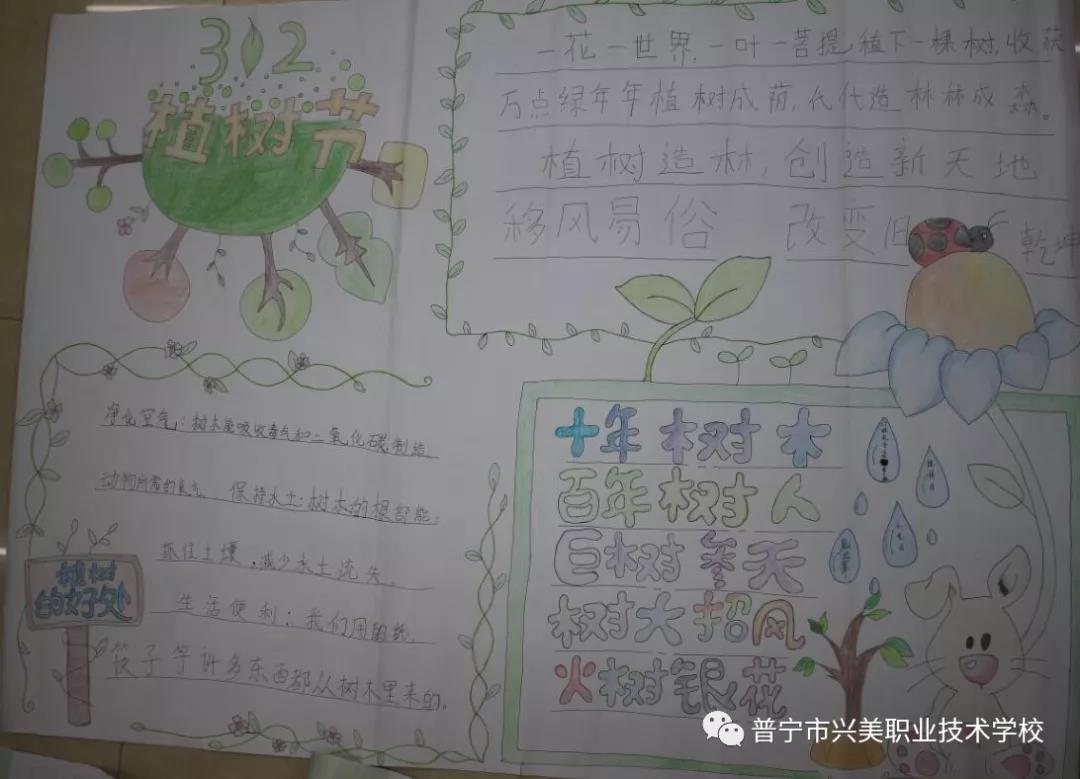 312
植树节
一花一世界,一叶一菩提,植下一棵树,收获
万点绿年年植树成荫,代代造林林成森。
植树造林,创造新天地
移风易俗 改变旧 乾坤
净化空气:树木能吸收毒气和二氧化碳,制造
动物所需的氧气 保持水土:树木的根部能,
抓住土壤,减少水土流失。
生活便利:我们用的纸,
筷子等许多东西都从树木里来的。
植树
的好处
十年树木
百年树人
巨树参天
树大招风
火树银花
普宁市兴美职业技术学校